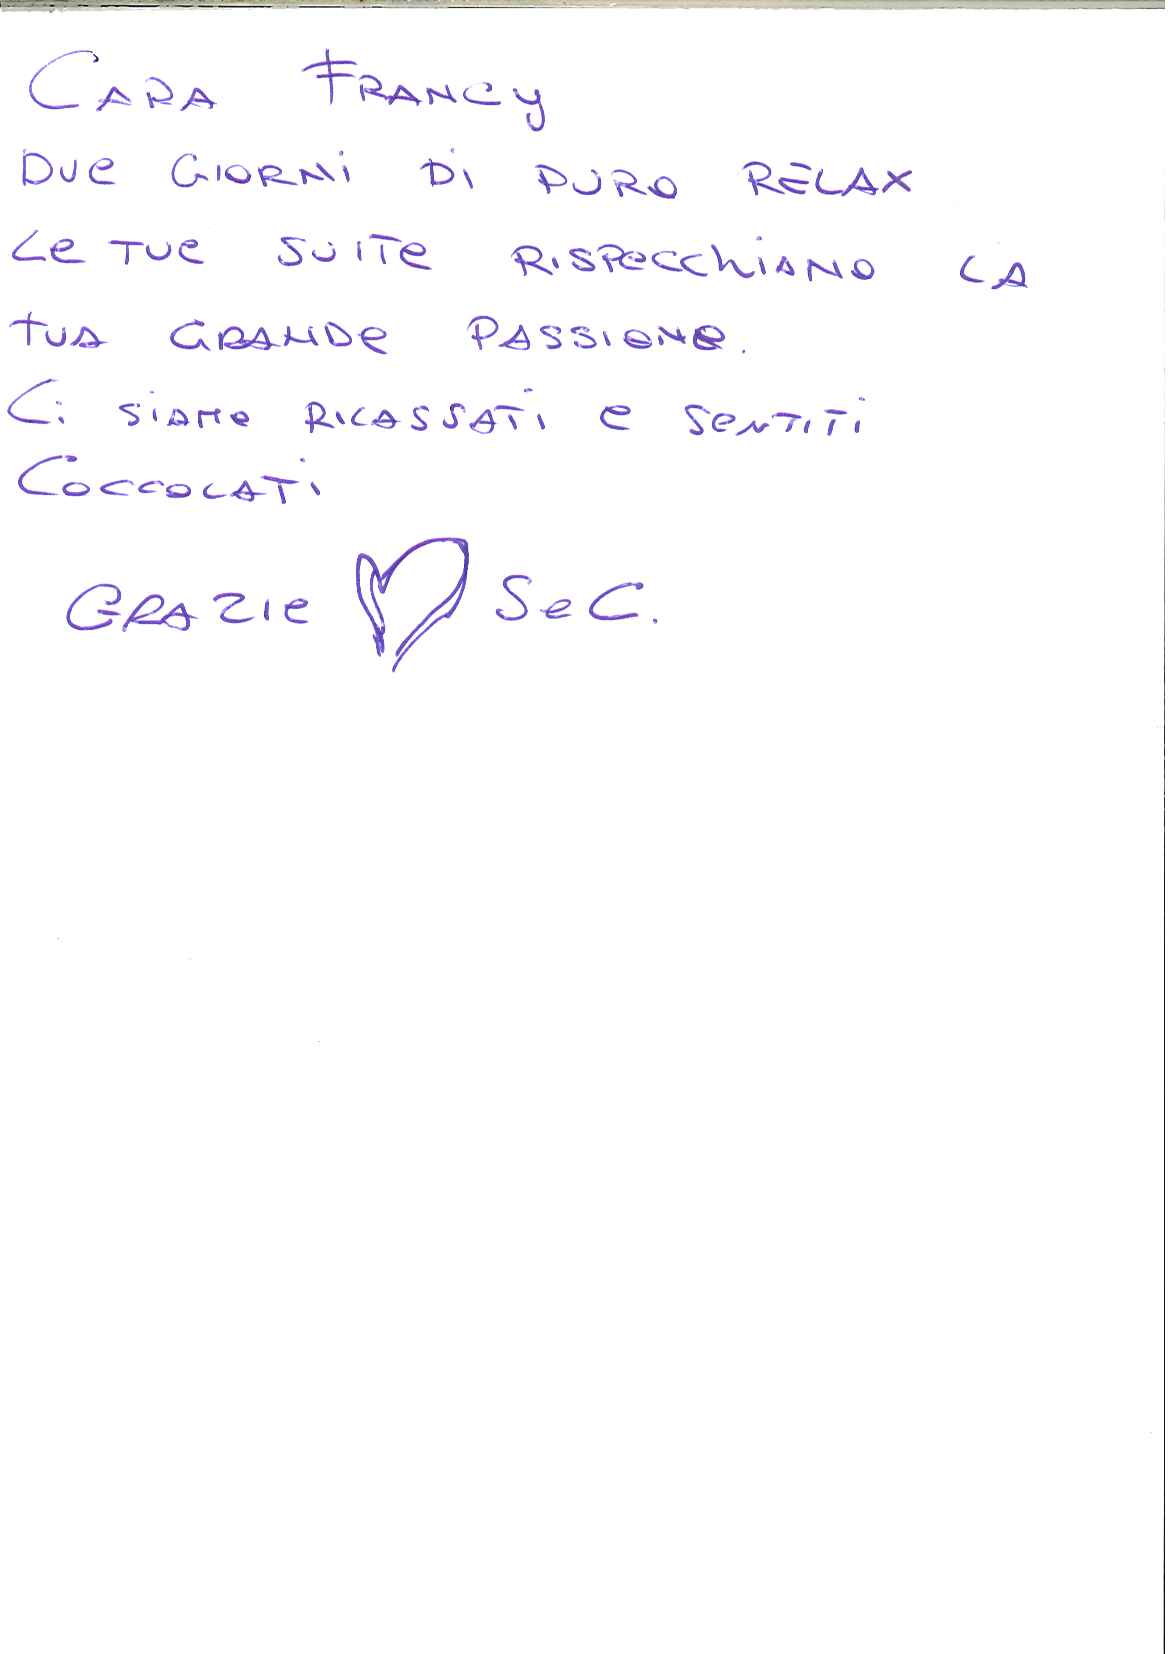 CARA FRANCY
DUE GIORNI DI PURO RELAX
LE TUE SUITE RISPECCHIANO LA
TUA GRANDE PASSIONE.
Ci SIAMO RILASSATI E SENTITI
COCCOLATI
GRAZIE SeC.